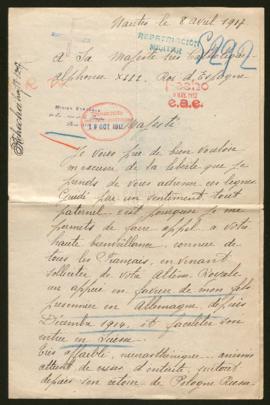 Nantes le 8 avril 1917
REPATRIACIÓN
MILITAR
A Sa Majesté très Catholique
Alphonse XIII. Roi d'Espagne
19 OCT 1917
Majesté
Je vous prie de bien vouloir
m'excuser de la liberté que je
prends de vous adresser ces lignes.
Guidé par un sentiment tout
paternel c'est pourquoi je me
permets de faire appel à votre
haute bienveillance, connue de
tous les Français, en venant
solliciter de votre Altesse Royale
un appui en faveur de mon fils
prisonnier en Allemagne depuis
Décembre 1914, et faciliter son
entrée en Suisse.
Très affaibli, neurasthénique, anémie
atteint de entérite, surtout
depuis son retour de Pologne Russe